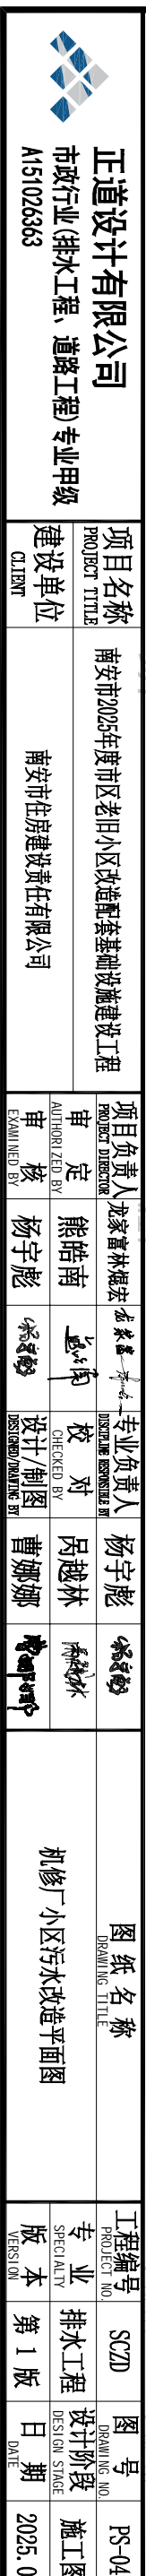 正道设计有限公司
市政行业(排水工程、道路工程)专业甲级
A151026363
项目名称
PROJECT TITLE
南安市2025年度市区老旧小区改造配套基础设施建设工程
建设单位
CLIENT
南安市住房建设责任有限公司
项目负责人
PROJECT DIRECTOR
龙家富林焜宏
专业负责人
DISCIPLINE RESPONSIBLE BY
杨宇彪
审 定
AUTHORIZED BY
熊皓南
校 对
CHECKED BY
闵越林
审 核
EXAMINED BY
杨宇彪
设计/制图
DESIGNED/DRAWING BY
曹娜娜
图纸名称
DRAWING TITLE
机修厂小区污水改造平面图
工程编号
PROJECT NO.
SCZD
图 号
DRAWING NO.
PS-04
专 业
SPECIALTY
排水工程
设计阶段
DESIGN STAGE
施工图
版 本
VERSION
第 1 版
日 期
DATE
2025.0